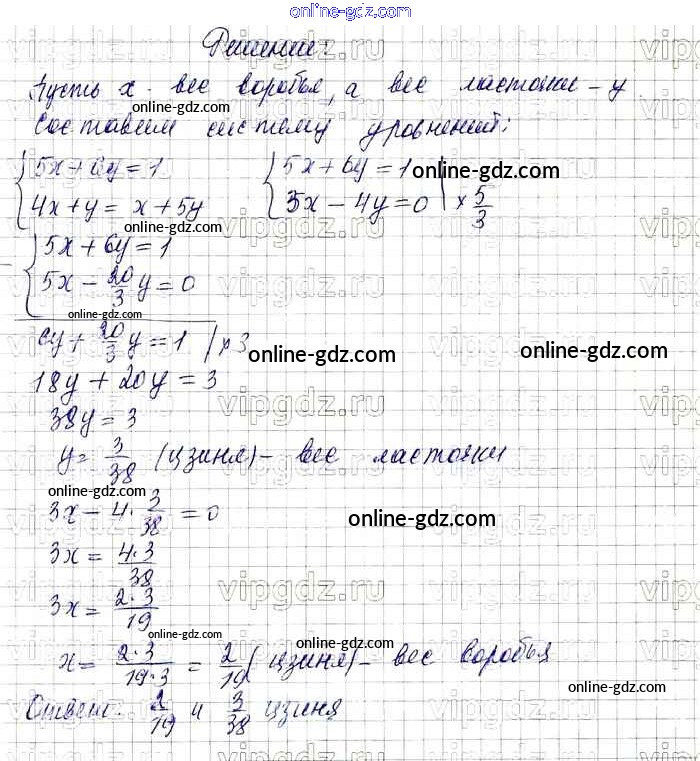 online-gdz.com
Решение:
Пусть x - вес воробья, а вес ласточки - y
online-gdz.com
online-gdz.com
Составим систему уровнений:
5x + 6y = 1
5x + 6y = 1
online-gdz.com
4x + y = x + 5y
3x - 4y = 0 | × 5/3
5x + 6y = 1
5x - 20/3 y = 0
6y + 20/3 y = 1 | × 3
online-gdz.com
online-gdz.com
18y + 20y = 3
38y = 3
y = 3/38 (цзиня) - вес ласточки
online-gdz.com
3x - 4 · 3/38 = 0
online-gdz.com
3x = 4·3/38
3x = 2·3/19
online-gdz.com
online-gdz.com
x = 2·3/19·3 = 2/19 (цзиня) - вес воробья
online-gdz.com
Ответ: 2/19 и 3/38 цзиня
online-gdz.com
vipgdz.ru